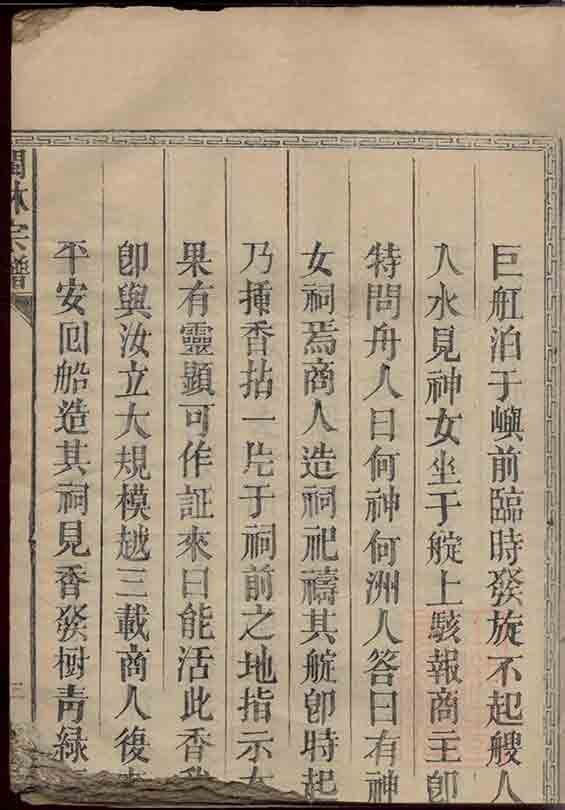 巨舡泊于嶼前臨時發旋不起艘人
入水見神女坐于椗上駭報商主卽
特問舟人曰何神何洲人答曰有神
女祠焉商人造祠祀禱其椗卽時起
乃挿香拈一片于祠前之地指示
果有靈顯可作証來日能活此香
卽與汝立大規模越三載商人復
平安囘船造其祠見香發樹青綠
閩林宗譜
三